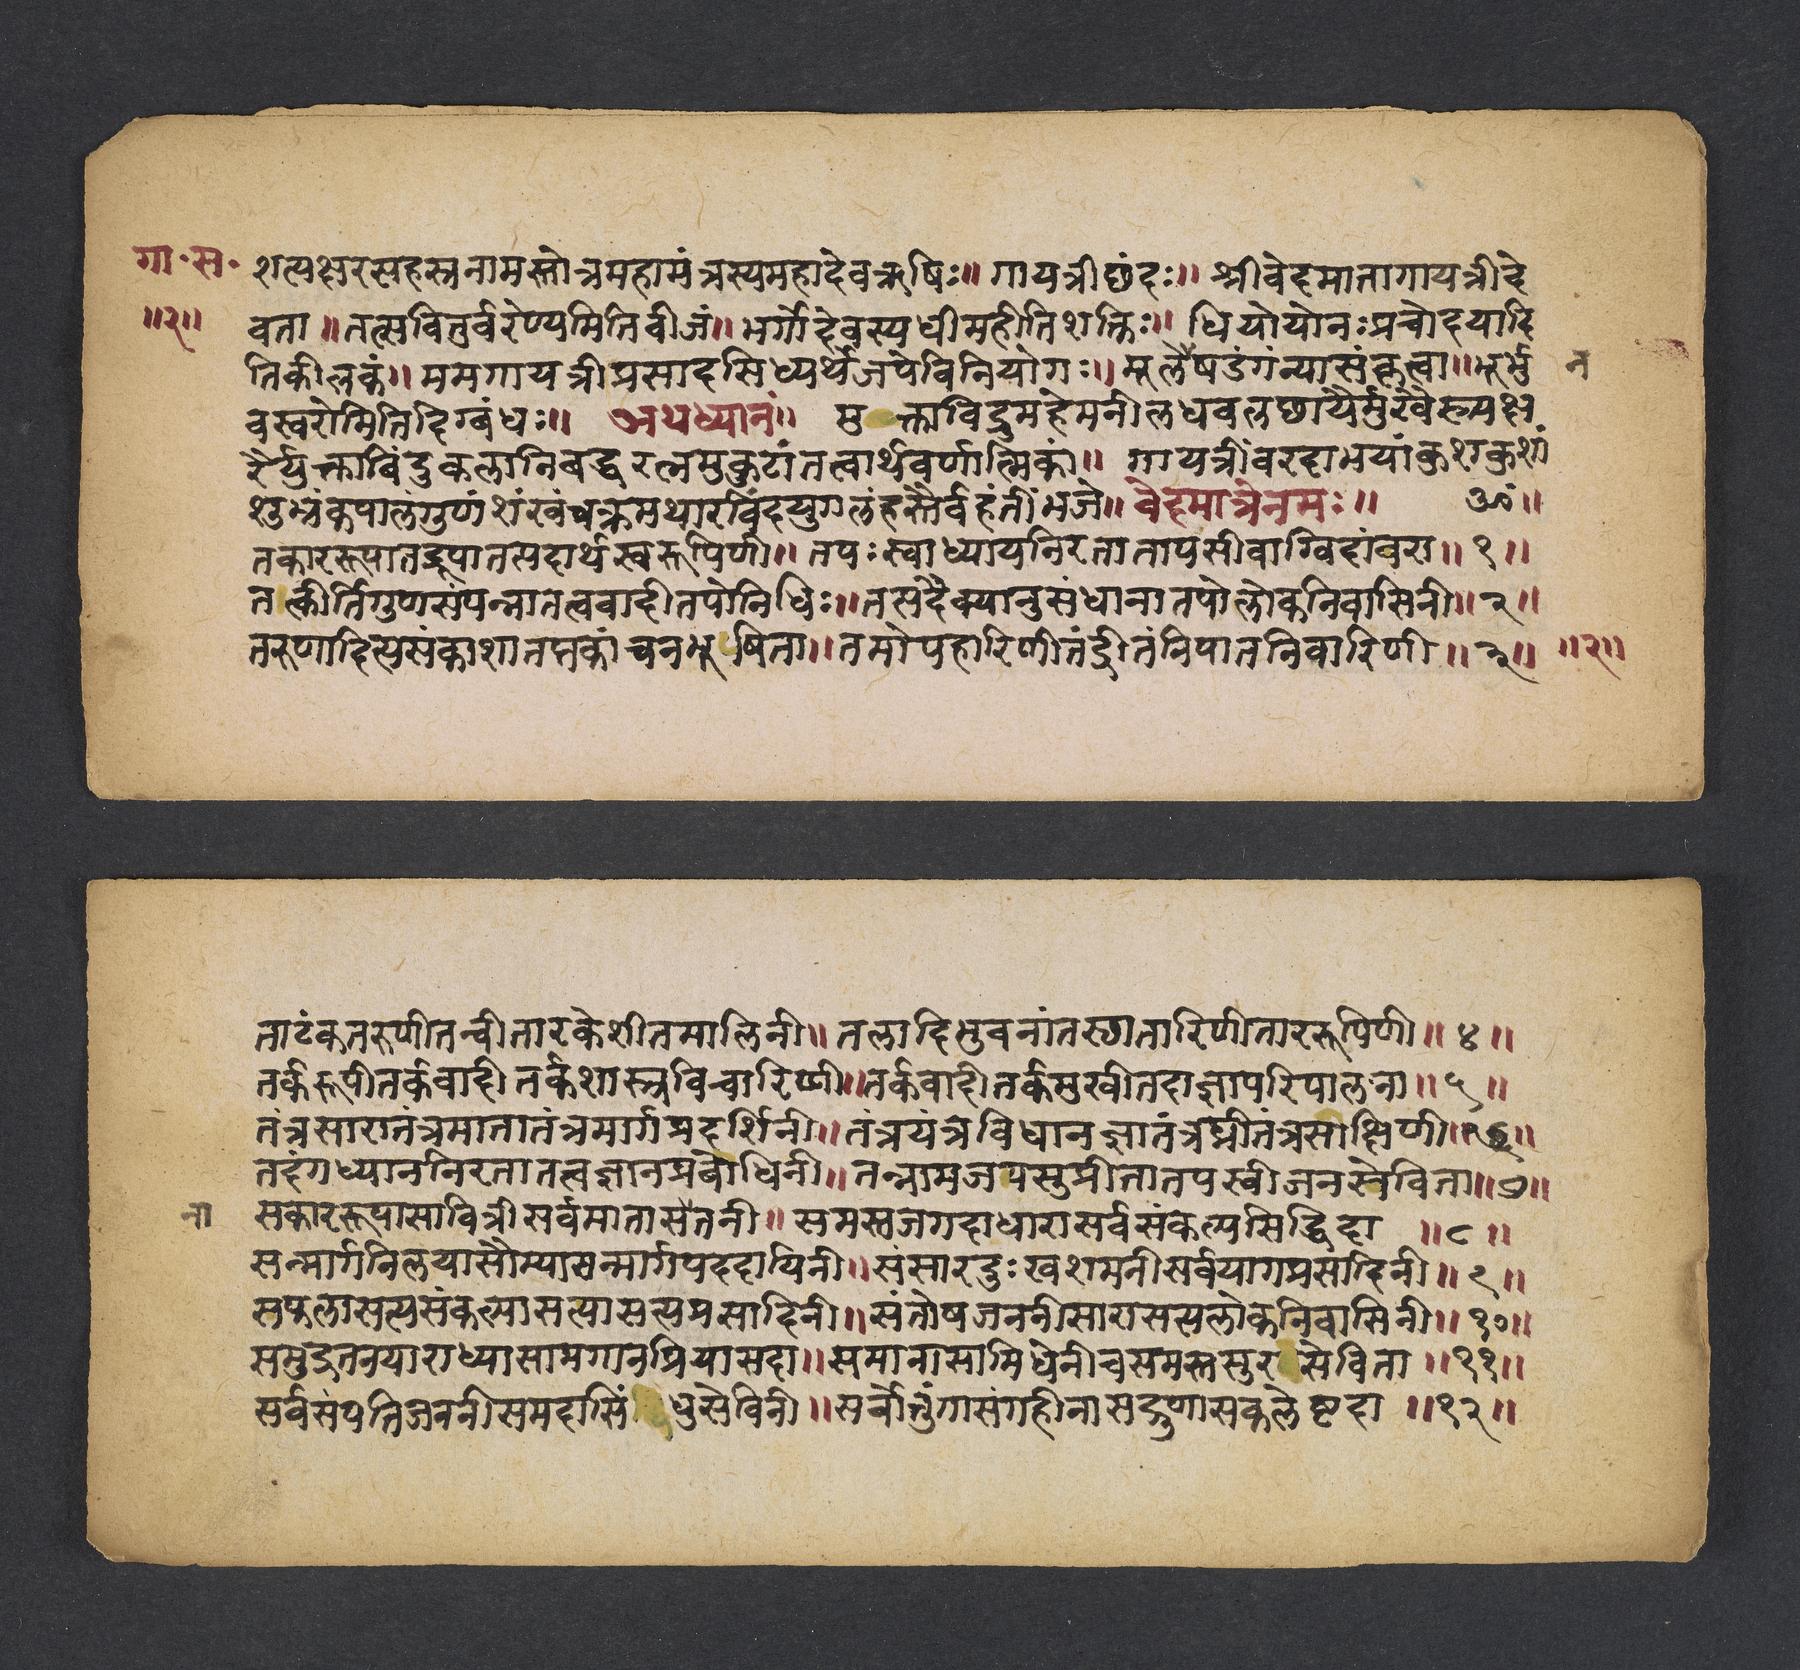 गा॰स॰ शत्यक्षरसहस्रनामस्तोत्रमहामंत्रस्यमहादेवऋषिः॥ गायत्रीछंदः॥ श्रीवेदमातागायत्रीदे
॥२॥ वता॥तत्सवितुर्वरेण्यमितिबीजं॥भर्गोदेवस्यधीमहीतिशक्तिः॥ धियोयोनःप्रचोदयादि
तिकीलकं॥ममगायत्रीप्रसादसिध्यर्थेजपेविनियोगः॥मूलेषडंगंन्यासंकृत्वा॥भूर्भु न
वस्वरोमितिदिग्बंधः॥ अथध्यानं॥ मुक्ताविद्रुमहेमनीलधवलछायैर्मुखैरूयक्ष
रैर्युक्ताबिंदुकलानिबद्धरत्नमुकुटांतत्वार्थवर्णात्मिकां॥ गायत्रींवरदाभयांकुशकुशां
शुभ्रंकपालंगुणंशंखंचक्रमथारविंदयुगलंहस्तैर्वहंतींभजे॥वेदमात्रेनमः॥ ॐ॥
तकाररूपातद्रूपातत्सदार्थस्वरूपिणी॥ तपःस्वाध्यायनिरतातापसीवाग्विदांवरा॥१॥
तत्कीर्तिगुणसंपन्नातत्ववाहीतपोनिधिः॥तत्सदैक्यानुसंधानातपोलोकनिवासिनी॥२॥
तरुणादित्यसंकाशातप्तकांचनभूषिता॥तमोपहारिणीतंद्रीतंनिपातनिवारिणी॥३॥ ॥२॥
ताटंकतरुणीतन्वीतारकेशीतमालिनी॥ तलादिभुवनांतस्छातारिणीताररूपिणी॥४॥
तर्करूपीतर्कवाहीतर्कशास्त्रविचारिणी॥तर्कवाहीतर्कमुखीतदाज्ञापरिपालना॥५॥
तंत्रसारातंत्रमातातंत्रमार्गप्रदर्शिनी॥तंत्रयंत्रविधानज्ञातंत्रघ्नीतंत्रसाक्षिणी॥६॥
तदंगध्याननिरतातत्वज्ञानप्रबोधिनी॥तन्नामजपसुप्रीतातपस्वीजनसेविता॥७॥
ना सकाररूपासावित्रीसर्वमातासतनी॥समस्तजगदाधारासर्वसंकल्पसिद्धिदा ॥८॥
सन्मार्गनिलयासौम्यासन्मार्गपददायिनी॥संसारदुःखशमनीसर्वयागप्रसादिनी॥९॥
सप्तलासत्यसंकल्पासत्यासत्यप्रसादिनी॥संतोषजननीसारासत्यलोकनिवासिनी॥१०॥
समुद्रतनयाराध्यासामगानप्रियासदा॥समानासामिधेनीचसमस्तसुरसेविता॥११॥
सर्वसंपत्तिजननीसमदासिंधुसेविनी॥सर्वोत्तुंगासंगहीनासद्गुणासकलेष्टदा॥१२॥